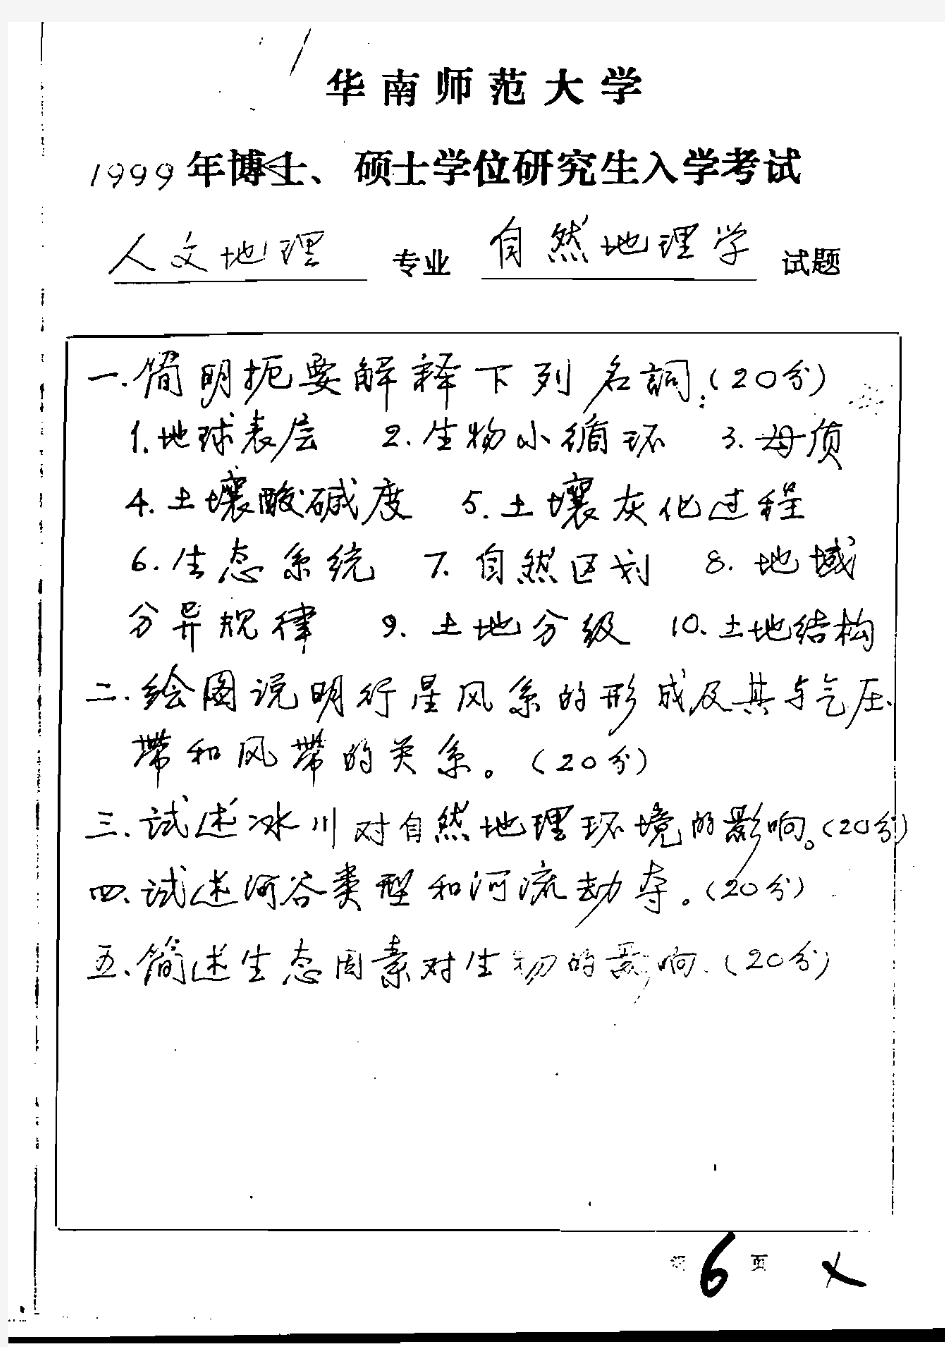 华南师范大学
1999年博士、硕士学位研究生入学考试
人文地理 专业 自然地理学 试题
一.简明扼要解释下列名詞:(20分)
1.地球表层 2.生物小循环 3.母质
4.土壤酸碱度 5.土壤灰化过程
6.生态系统 7.自然区划 8.地域
分异规律 9.土地分级 10.土地结构
二.绘图说明行星风系的形成及其与气压
带和风带的关系。(20分)
三.试述冰川对自然地理环境的影响。(20分)
四.试述河谷类型和河流劫夺。(20分)
五.简述生态因素对生物的影响.(20分)
第6页